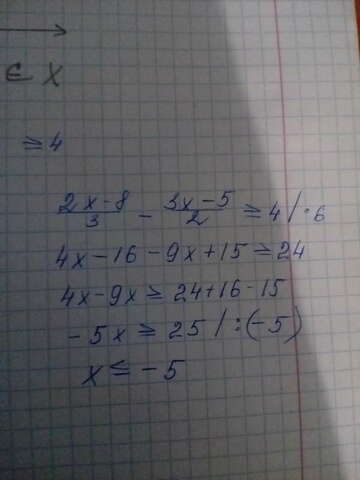 ∈ X
≥ 4
(2x - 8)/3 - (3x - 5)/2 ≥ 4 / · 6
4x - 16 - 9x + 15 ≥ 24
4x - 9x ≥ 24 + 16 - 15
- 5x ≥ 25 / : (-5)
x ≤ - 5